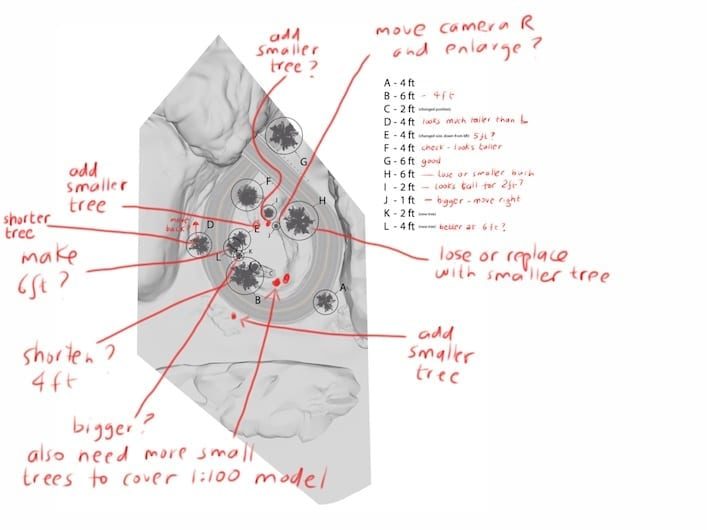 add
smaller
tree?
move camera R
and enlarge?
A - 4 ft
B - 6 ft - 4ft
C - 2 ft (changed position)
D - 4 ft looks much taller than L
E - 4 ft (changed size down from 6ft) 5ft?
F - 4 ft check - looks taller
G - 6 ft good
H - 6 ft — lose or smaller bush
I - 2 ft — looks tall for 2ft?
J - 1 ft — bigger - move right
K - 2 ft (new tree)
L - 4 ft (new tree) better as 6ft?
G
F
H
add
smaller
tree
shorter
tree
move
back?
D
E
I
J
K
L
make
6ft?
B
A
lose or replace
with smaller tree
shorten?
4ft
add
smaller
tree
bigger?
also need more small
trees to cover 1:100 model